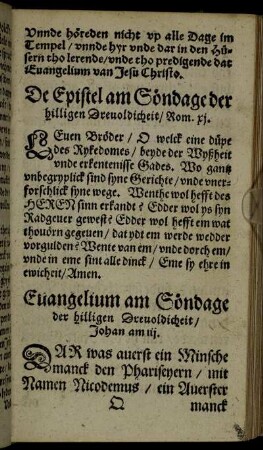 Vnnde höreden nicht vp alle Dage im
Tempel / vnnde hyr vnde dar in den Hü-
sern tho lerende / vnde tho predigende dat
Euangelium van Jesu Christo.
De Epistel am Söndage der
hilligen Dreuoldicheit / Rom. xj.
LEuen Bröder / O welck eine düpe
des Rykedomes / beyde der Wyßheit
vnde erkentenisse Gades. Wo gantz
vnbegryplick sind syne Gerichte / vnde vner-
forschlick syne wege. Wenthe wol hefft des
HEREN sinn erkandt? Edder wol ys syn
Radgeuer gewest? Edder wol hefft em wat
thouörn gegeuen / dat ydt em werde wedder
vorgulden? Wente van em / vnde dorch em /
vnde in eme sint alle dinck / Eme sy ehre in
ewicheit / Amen.
Euangelium am Söndage
der hilligen Dreuoldicheit /
Johan am iij.
DAR was auerst ein Minsche
manck den Phariseyern / mit
Namen Nicodemus / ein Auerster
Q manck